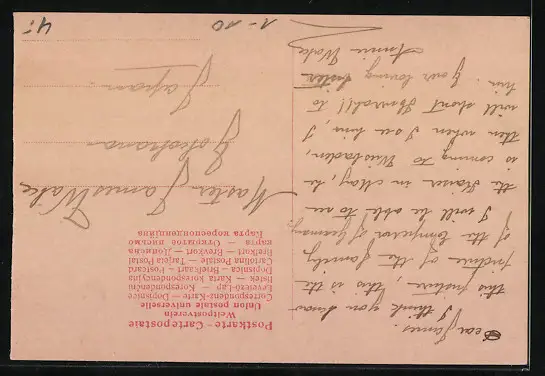 Postkarte - Carte postale
Weltpostverein
Union postale universelle
Correspondenz-Karte - Dopisnice
Levelező-Lap - Korespondenční
lístek - Karta korespondencyjna
Dopisnica - Brefkaart - Postcard
Cartolina Postale - Tarjeta Postal
Brefkort - Brevkort - Дописна
карта - Открытое письмо
Карта корреспонденціина
Master James Wake
Yokohama
Japan.
Dear James.
I think you know
this picture, this is the
picture of the family
of the Emperor of Germany.
I will be able to see
the Kaiser in May, he
is coming to Wiesbaden,
then when I see him, I
will shout Hurrah!! to
him. Your loving sister
Annie Wake
1-10
4.-